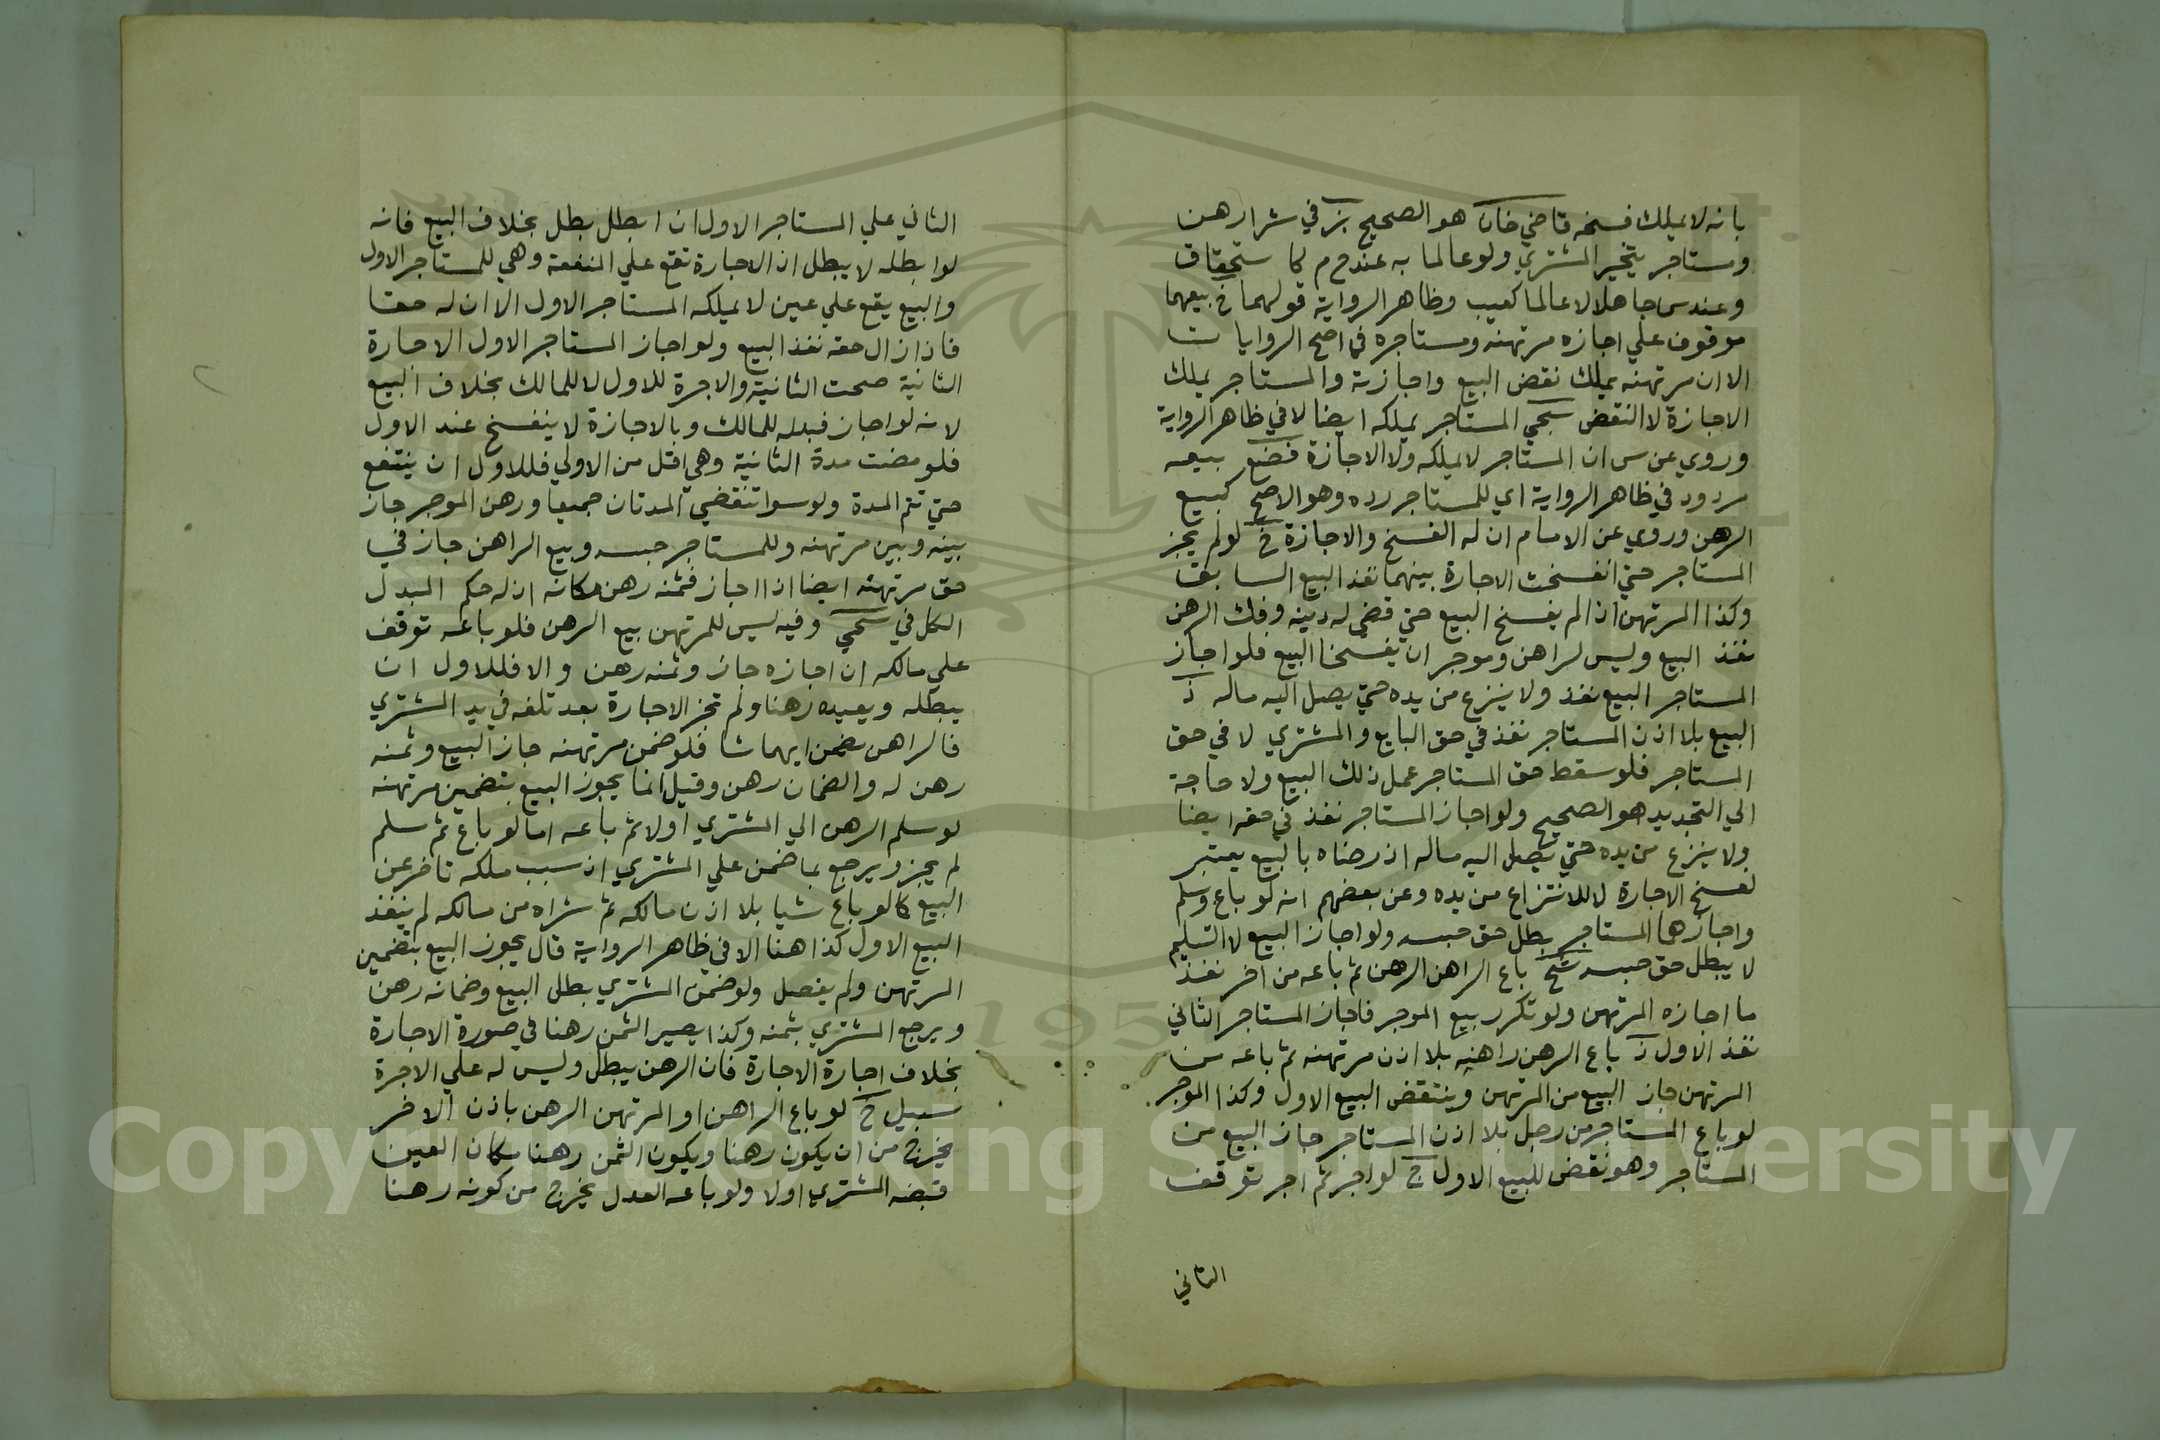 بانه لا يملك فسخه قاضي خان هو الصحيح بز في شرا رهن
ومستاجر يتخير المشتري ولو عالما به عند ح م كما ستحقاق
وعند س جاهلا لا عالما كعيب وظاهر الرواية قولهما خ بيعهما
موقوف علي اجازه مرتهنه ومستاجره في اصح الروايات
الا ان مرتهنه يملك نقض البيع واجازته والمستاجر يملك
الاجازة لا النقض سجي المستاجر يملكه ايضا لا في ظاهر الرواية
وروي عن س ان المستاجر لا يملكه ولا الاجازة فضع بيعه
مردود في ظاهر الرواية اي للمستاجر رده وهو الاصح كبيع
الرهن وروي عن الامام ان له الفسخ والاجازة خ لو لم يجز
المستاجر حتي انفسخت الاجارة بينهما نفذ البيع السابق
وكذا المرتهن اذا لم يفسخ البيع حتي قضي له دينه وفك الرهن
نفذ البيع وليس لراهن وموجر ان يفسخا البيع فلو اجاز
المستاجر البيع نفذ ولا ينزع من يده حتي يصل اليه ماله ذ
البيع بلا اذن المستاجر نفذ في حق البايع والمشتري لا في حق
المستاجر فلو سقط حق المستاجر عمل ذلك البيع ولا حاجة
الي التجديد هو الصحيح ولو اجاز المستاجر نفذ في حقه ايضا
ولا ينزع من يده حتي يصل اليه ماله اذ رضاه بالبيع يعتبر
لفسخ الاجارة لا للانتزاع من يده وعن بعضهم انه لو باع وسلم
واجازهما المستاجر بطل حق حبسه ولو اجاز البيع لا التسليم
لا يبطل حق حبسه شخ باع الراهن الرهن ثم باعه من اخر نفذ
ما اجازه المرتهن ولو تكرر بيع الموجر فاجاز المستاجر الثاني
نفذ الاول ذ باع الرهن راهنه بلا اذن مرتهنه ثم باعه من
المرتهن جاز البيع من المرتهن وينتقض البيع الاول وكذا الموجر
لو باع المستاجر من رجل بلا اذن المستاجر جاز البيع من
المستاجر وهو نقض للبيع الاول ج لو اجر ثم اجر توقف
الثاني
الثاني علي المستاجر الاول ان ابطل بطل بخلاف البيع فانه
لو ابطله لا يبطل اذ الاجارة تقع علي المنفعة وهي للمستاجر الاول
والبيع يقع علي عين لا يملكه المستاجر الاول الا ان له حقا
فاذا زال حقه نفذ البيع ولو اجاز المستاجر الاول الاجارة
الثانية صحت الثانية والاجرة للاول لا للمالك بخلاف البيع
لانه لو اجاز فبدله للمالك وبالاجازة لا ينفسخ عند الاول
فلو مضت مدة الثانية وهي اقل من الاولي فللاول ان ينتفع
حتي تتم المدة ولو سوا تنقضي المدتان جميعا ورهن الموجر جاز
بينه وبين مرتهنه وللمستاجر حبسه وبيع الراهن جاز في
حق مرتهنه ايضا اذا اجاز فثمنه رهن مكانه اذ له حكم المبدل
الكل في سجي وفيه ليس للمرتهن بيع الرهن فلو باعه توقف
علي مالكه ان اجازه جاز وثمنه رهن والا فللاول ان
يبطله ويعيده رهنا ولم تجز الاجارة بعد تلفه في يد المشتري
فالراهن يضمن ايهما شا فلو ضمن مرتهنه جاز البيع وثمنه
رهن له والضمان رهن وقيل انما يجوز البيع بتضمين مرتهنه
لو سلم الرهن الي المشتري اولا ثم باعه اما لو باع ثم سلم
لم يجز ويرجع بما ضمن علي المشتري اذ سبب ملكه تاخر عن
البيع كما لو باع شيا بلا اذن مالكه ثم شراه من مالكه لم ينفذ
البيع الاول كذا هنا الا في ظاهر الرواية قال يجوز البيع بتضمين
المرتهن ولم يفصل ولو ضمن المشتري بطل البيع وضمانه رهن
ويرجع المشتري بثمنه وكذا يصير الثمن رهنا في صورة الاجارة
بخلاف اجارة الاجارة فان الرهن يبطل وليس له علي الاجرة
سبيل ح لو باع الراهن او المرتهن الرهن باذن الاخر
يخرج من ان يكون رهنا ويكون الثمن رهنا مكان العين
قبضه المشتري اولا ولو باعه العدل يخرج من كونه رهنا
Copyright © King Saud University
195